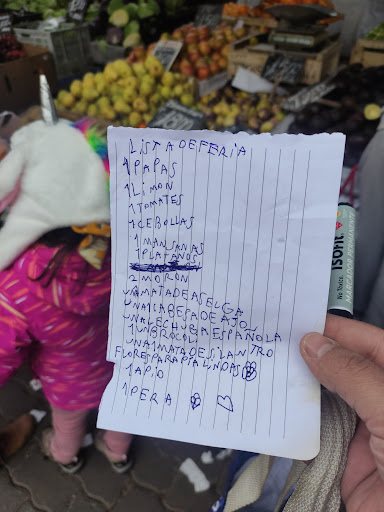 LISTA DE FERIA
1 PAPAS
1 LIMON
1 TOMATES
1 CEBOLLAS
1 MANSANAS
1 PLATANOS
2 MORON
UNA MATA DE ASELGA
UNA CABESA DE AJO
UNA LECHUGA ESPAÑOLA
1 UN BROCOLI
UNA 1 MATA DE SILANTRO
FLORES PARA PIA LINDAS
1 APIO
1 PERA
ISOFIT
No Tóxico